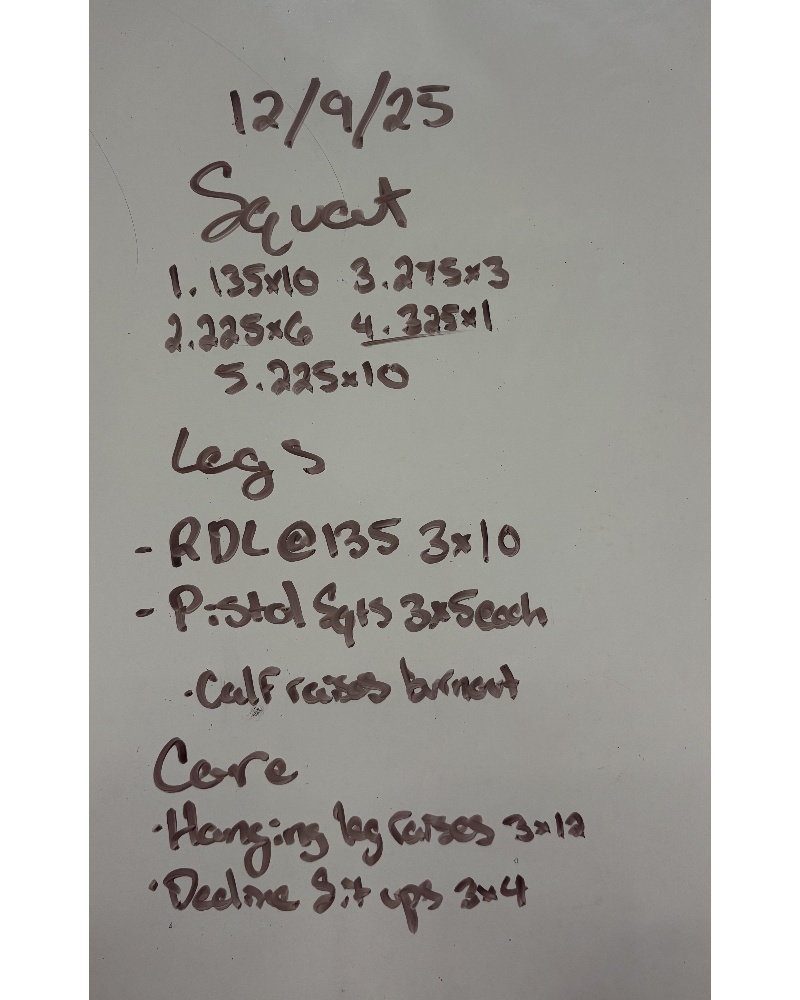 12/9/25
Squat
1. 135x10 3. 275x3
2. 225x6 4. 325x1
5. 225x10
Legs
- RDL @ 135 3x10
- Pistol Sqts 3x5 each
· Calf raises burnout
Core
· Hanging leg raises 3x12
· Decline Sit ups 3x4